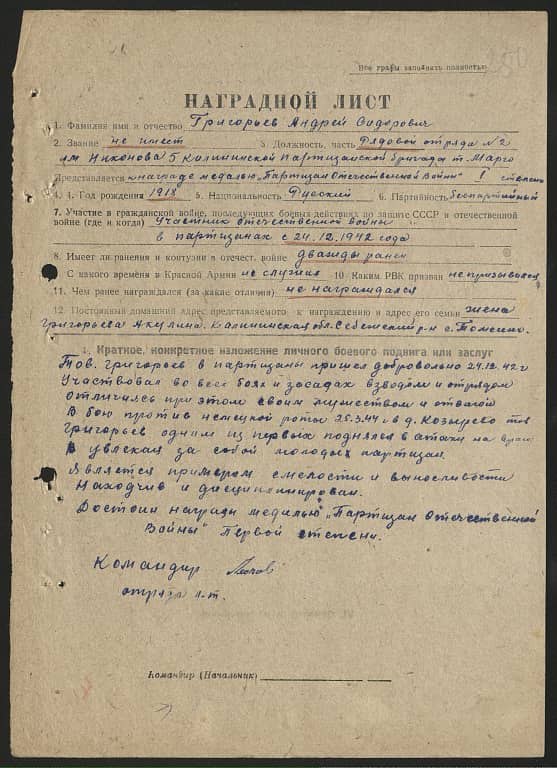 250
Все графы заполнять полностью
НАГРАДНОЙ ЛИСТ
1. Фамилия имя и отчество Григорьев Андрей Сидорович
2. Звание не имеет 3. Должность, часть Рядовой отряда №2
им. Никонова 5 Калининской партизанской бригады т. Марго
Представляется к награде медалью „Партизан Отечественной Войны" I степени
4. Год рождения 1918 5. Национальность Русский 6. Партийность беспартийный
7. Участие в гражданской войне, последующих боевых действиях по защите СССР и отечественной
войне (где и когда) Участник Отечественной войны
в партизанах с 24.12.1942 года
8. Имеет ли ранения и контузии в отечест. войне дважды ранен
С какого времени в Красной Армии не служил 10. Каким РВК призван не призывался
11. Чем ранее награждался (за какие отличия) не награждался
12. Постоянный домашний адрес представляемого к награждению и адрес его семьи жена
Григорьева Акулина. Калининская обл. Себежский р-н с. Томсино.
1. Краткое, конкретное изложение личного боевого подвига или заслуг
Тов. Григорьев в партизаны пришел добровольно 24.12.42 г
Участвовал во всех боях и засадах взводом и отрядом
отличаясь при этом своим мужеством и отвагой
В бою против немецкой роты 25.3.44 г в д. Козырево тов
Григорьев одним из первых поднялся в атаку на врага
увлекая за собой молодых партизан.
Является примером смелости и выносливости
Находчив и дисциплинирован.
Достоин награды медалью „Партизан Отечественной
Войны" Первой степени.
Командир
отряда
Командир (Начальник)